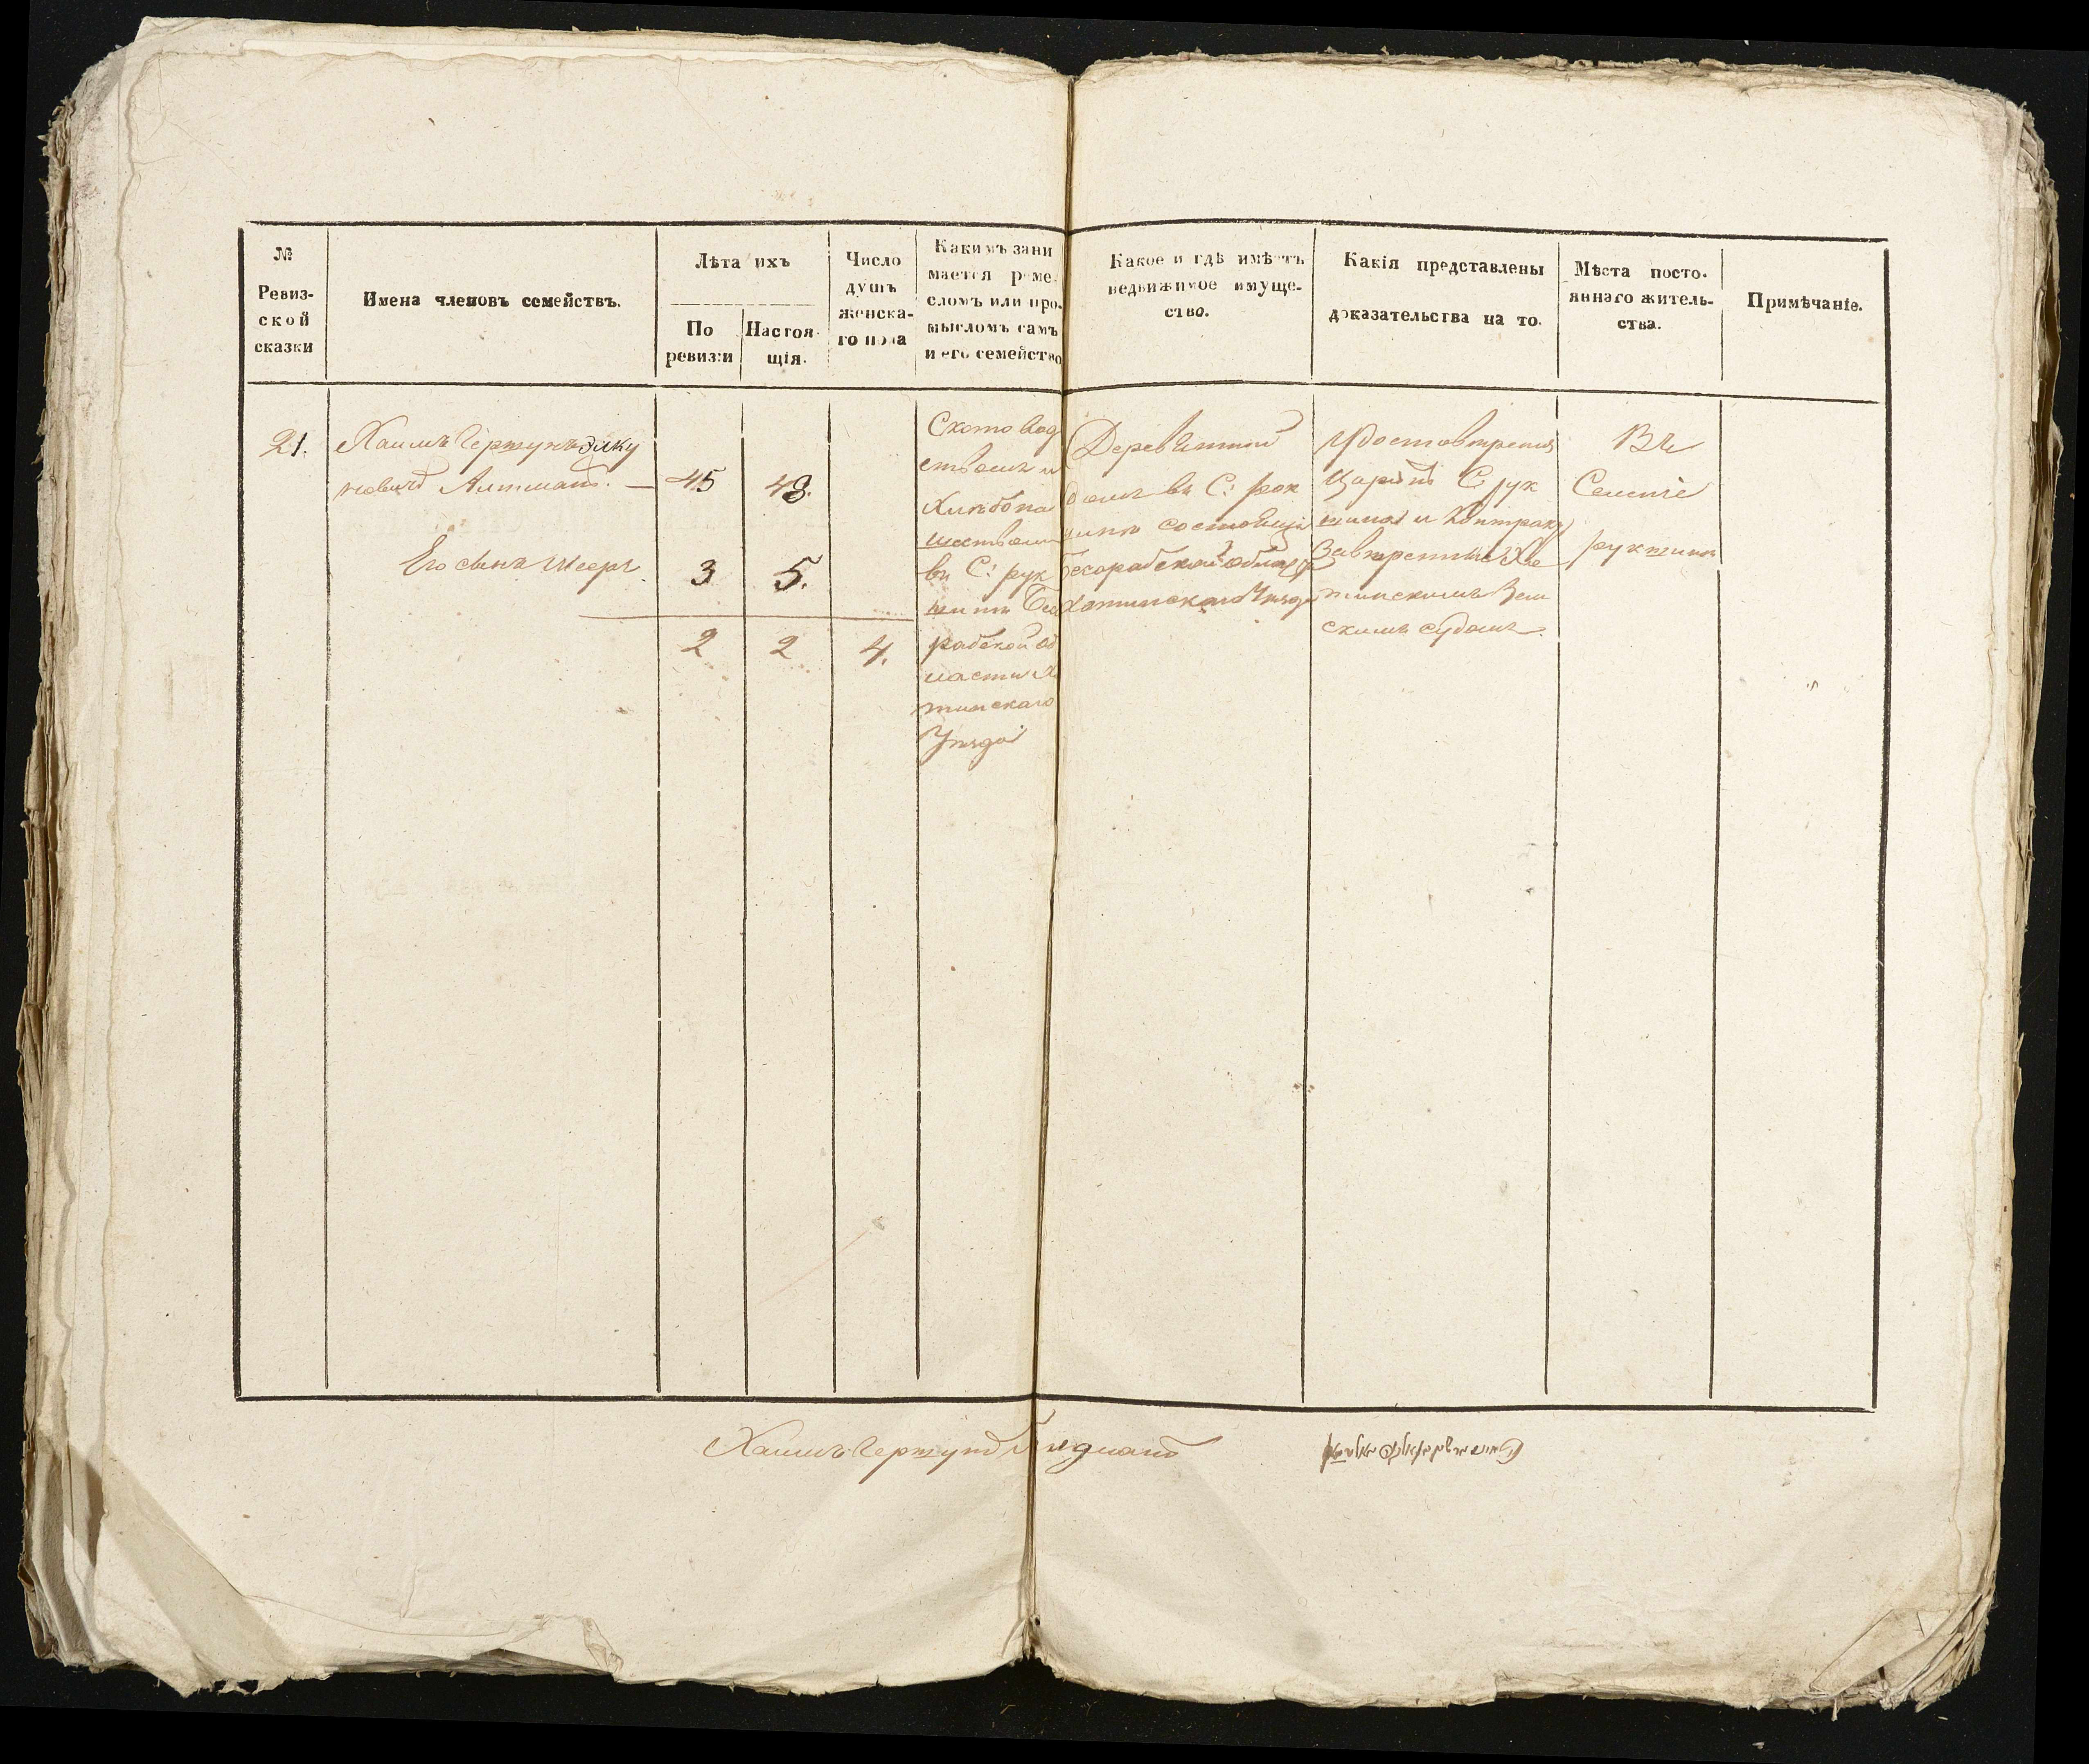 №
Ревиз-
ской
сказки
Имена членовъ семействъ.
Лѣта ихъ
По
ревизіи
Настоя-
щія.
Число
душъ
женска-
го пола
Какимъ зани
мается реме-
сломъ или про-
мысломъ самъ
и его семейство
Какое и гдѣ имѣетъ
недвижимое имуще-
ство.
Какія представлены
доказательства на то.
Мѣста посто-
яннаго житель-
ства.
Примѣчаніе.
21.
Хаимъ Гершунъ
45
48.
Его сынъ Мееръ
3
5.
2
2
4.
Скотовод
ствомъ и
Хлѣбопа
шествомъ
въ С: рук
шинѣ Бес
рабской об
ласти Хо
тинскаго
Уѣзда
Деревянной
домъ въ С: рок
шинѣ состоящій
Бесарабской области
Хотинскаго Уѣзда
С рук
шина и Контракт
Хо
тинскимъ Зем
скимъ судомъ.
Въ
Селеніе
рукшинѣ
Хаимъ Гершунъ